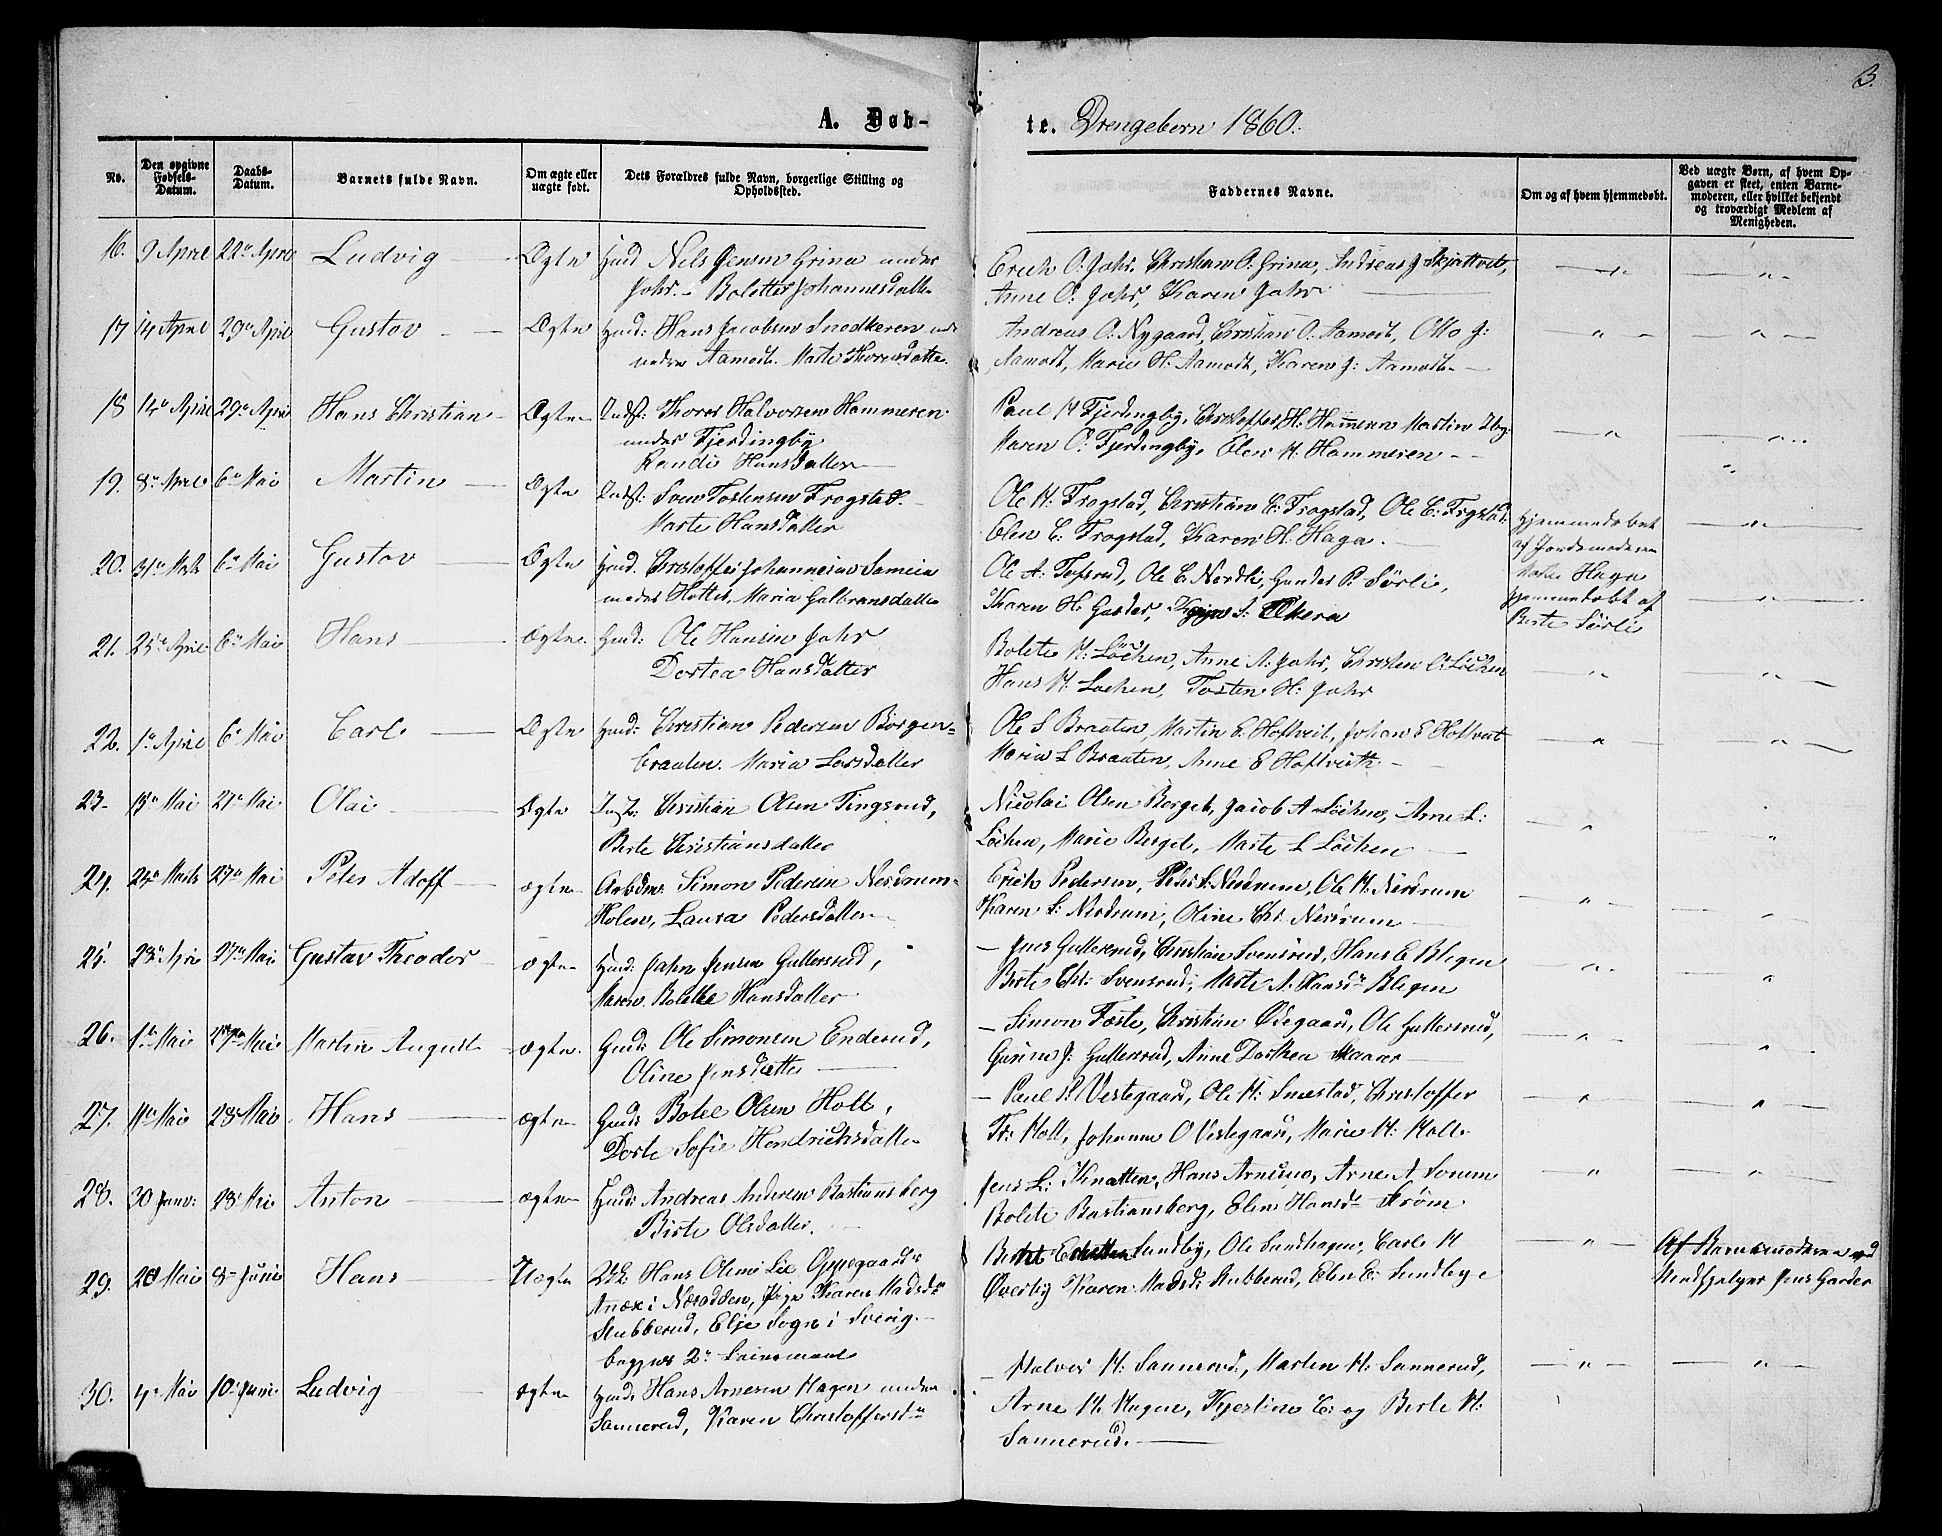 3.
A. Døb-
te. Drengebørn 1860.
No.
Den opgivne Fødsels-Datum.
Daabs-Datum.
Barnets fulde Navn.
Om ægte eller uægte født.
Dets Forældres fulde Navn, borgerlige Stilling og Opholdssted.
Faddernes Navne.
Om og af hvem hjemmedøbt.
Ved uægte Børn, af hvem Opgaven er skeet, enten Barnemoderen, eller hvilket bekjendt og troværdigt Medlem af Menigheden.
16. 9 April 22de April Ludvig Ægte Hmd Nels Jensen Grina under
Johr. Bolette Johannesdatter
Erich O: Johr. Christian O: Grina, Andreas J. Skjattvet,
Anne O: Johr, Karen Johr
17 14 April 29de April Gustav Ægte Hmd: Hans Jacobsen Snedkeren
nedre Aamodt. Marte Thorersdatter
Andreas O: Nygaard, Christian O. Aamodt, Otto J:
Aamodt, Marie H. Aamodt, Karen J: Aamodt
18 14de April 29de April Hans Christian Ægte Indst: Thorer Halvorsen Hammeren
under Fjerdingby
Randi Hansdatter
Paul H Fjerdingby, Christoffer H. Hammeren Martin
Karen O. Fjerdingby, Elen H. Hammeren
19. 8de April 6te Mai Martin Ægte Indst: Sven Tostensen Frogstad
Marte Hansdatter
Ole H. Frogstad, Christian E: Frogstad, Ole E: Frogstad
Elen E: Frogstad, Karen H. Haga.
Hjemmedøbt
af Jordemoderen
Haga
20. 31te Marts 6te Mai Gustov Ægte Hmd. Christoffer Johannesen
Maria Gulbransdatter
Ole A: Tofsrud, Ole E. Nordli, Gunder P. Sörli,
Karen H. Garder, S: Økern
hjemmedøbt af
Berte Sörli
21. 25de April 6te Mai Hans Ægte Hmd: Ole Hansen Johr
Dortea Hansdatter
Bolete H. Löchen, Anne A: Johr, Christen O: Löchen
Hans H. Lochen, Tosten H: Johr
22. 1ste April 6te Mai Carl Ægte Hmd: Christian Pedersen Borgen-
braaten. Maria Larsdatter
Ole L Braaten, Martin E. Hoftveit, Johan E Hoftveit
Maria L Braaten, Anne E Hoftveith
23. 15de Mai 27de Mai Olai Ægte Inst: Christian Olsen Tingsrud,
Berte Christiansdatter
Nicolai Olsen Berget, Jacob A Löchen, Arne L:
Löchen, Marie Berget, Marte L Löchen
24. 24de Marts 27de Mai Peter Adoff ægte Arbdm: Simon Pedersen Nerdrum-
Holen, Laura Pedersdatter
Erich Pedersen, Peder S: Nerdrum, Ole H. Nerdrum
Karen S: Nerdrum, Oline Chr. Nerdrum
25. 23de Apri 27de Mai Gustav Theodor ægte Hmd: Jahn Jensen Gullersrud,
Maren Bolette Hansdatter
Jens Gullersrud, Christian Svensrud, Hans E Blegen
Berte Chr: Svensrud, Marte A. Hansdr Blegen
26. 1ste Mai 27de Mai Martin August Ægte Gmd: Ole Simonsen Enderud,
Oline Jensdatter
Simon Foste, Christian Ødegaard, Ole Gullersrud,
Gurine J: Gullersrud, Anne Dorthea Skaarer
27. 11te Mai 28de Mai Hans ægte Gmd: Botel Olsen Holt,
Dorte Sofie Hendrichsdatter
Paul P. Vestegaard, Ole H: Smestad, Christoffer
Fr: Holt, Johanne O Vestegaard, Marie H: Holt
28. 30 Janv: 28 Mai Anton ægte Hmd: Andreas Andersen Bastiansberg
Berte Olsdatter.
Jens L: Knatten, Hans Arnesen, Arne A Sorum
Bolete Bastiansberg, Elen Hansdr Strøm
29. 20 Mai 8de Juni Hans Uægte Hans Olsen Lie Oppegaards
Anæx i Næsodden, Pige Karen Madsdr
Stubberud, Elje Sogn i Sverig.
begges 2det Leiermaal
Sundby, Ole Sundhagen, Carl H
Øverby Karen Madsd: Stubberud, Elen E: Sundbye
Af Barnemoderen og
Medhjelper Jens Garder
30. 4de Mai 10de Juni Ludvig ægte Hmd: Hans Arnesen Hagen under
Sannerud, Karen Christoffersdr
Halvor H: Sannerud, Marten H: Sannerud,
Arne H. Hagen, Kjerstine E: og Berte H:
Sannerud.